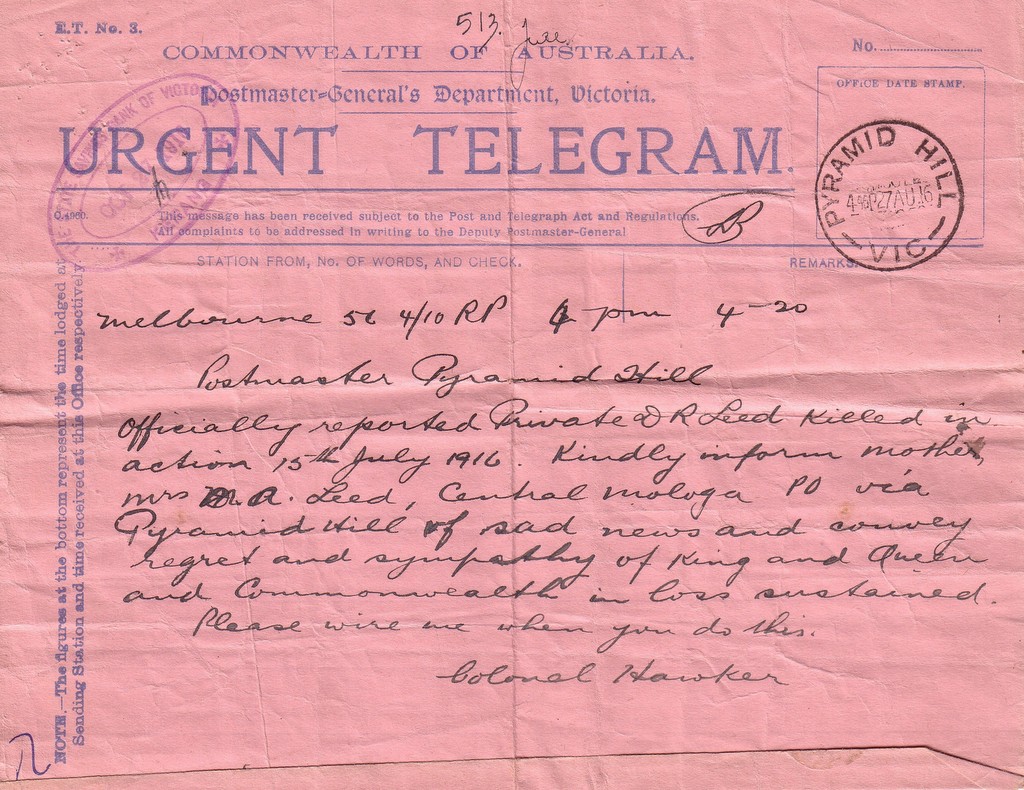 E.T. No. 3.
513.
No.
COMMONWEALTH OF AUSTRALIA.
OFFICE DATE STAMP.
Postmaster-General's Department, Victoria.
URGENT TELEGRAM.
PYRAMID HILL
27AU16
VIC
BANK OF VICTO
C.4960.
This message has been received subject to the Post and Telegraph Act and Regulations.
All complaints to be addressed in writing to the Deputy Postmaster-General
STATION FROM, No. OF WORDS, AND CHECK.
REMARKS.
Melbourne 56 4/10 RP pm 4-20
Postmaster Pyramid Hill
Officially reported Private D R Leed Killed in
action 15th July 1916. Kindly inform mother,
Mrs A. Leed, Central Mologa PO via
Pyramid Hill of sad news and convey
regret and sympathy of King and Queen
and Commonwealth in loss sustained.
Please wire me when you do this.
Colonel Hawker
NOTE.—The figures at the bottom represent the time lodged at
Sending Station and time received at this Office respectively.